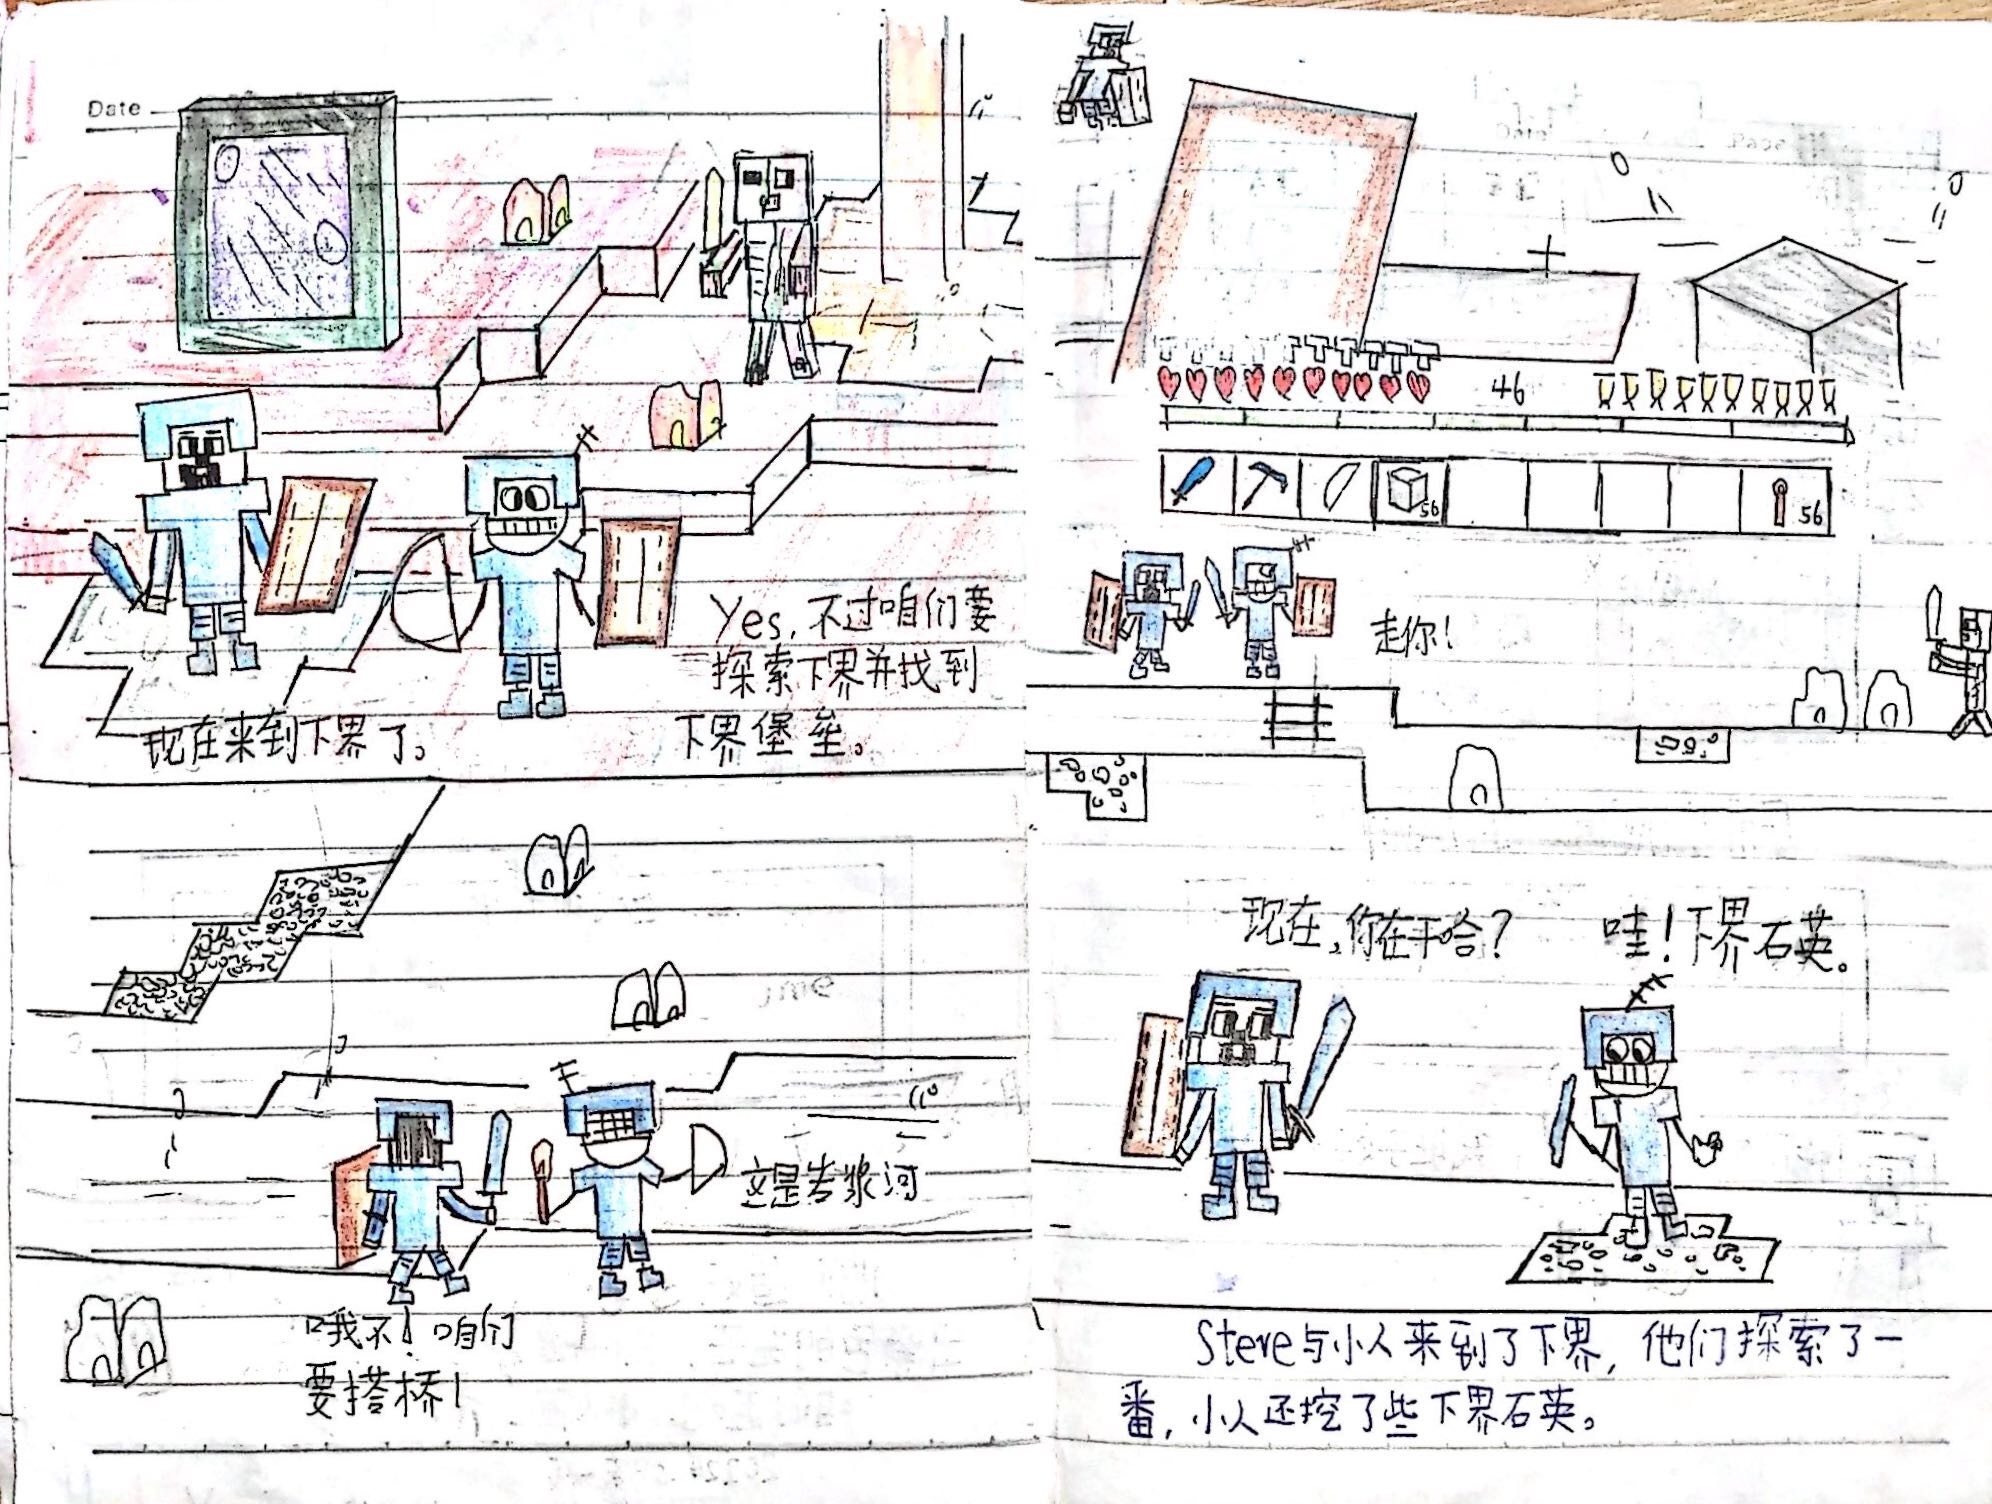 Date
Yes,不过咱们要
探索下界并找到
下界堡垒。
现在来到下界了。
这是岩浆河
哦不!咱们
要搭桥!
46
56
56
走你!
现在,你在干哈?
哇!下界石英。
Steve与小人来到了下界,他们探索了一
番,小人还挖了些下界石英。